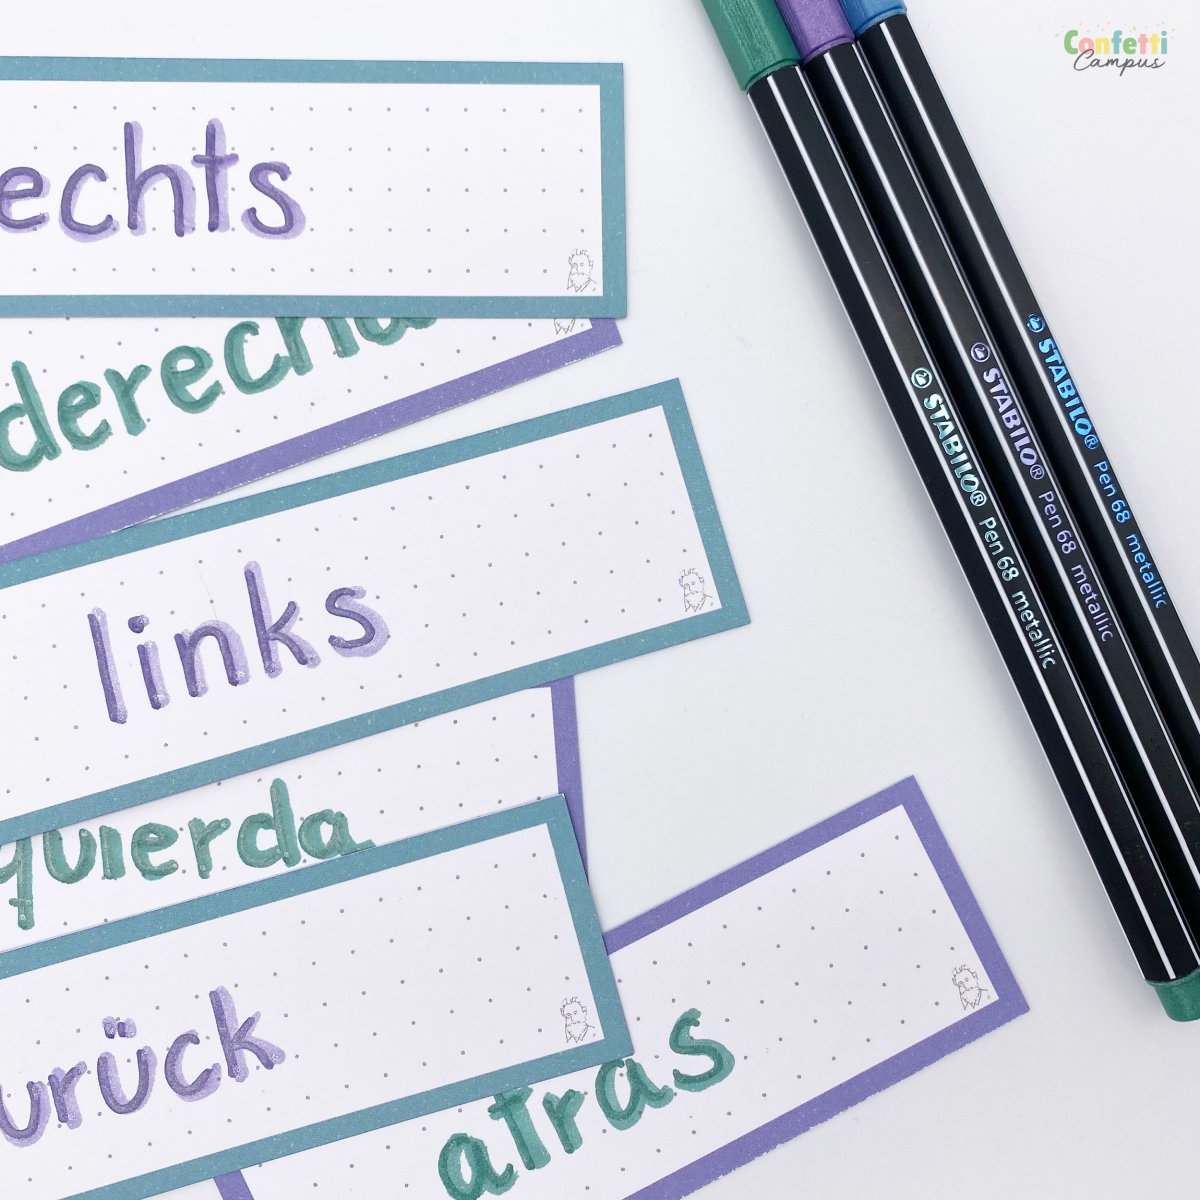 Confetti
Campus
echts
derecha
links
quierda
urück
atras
STABILO® Pen 68 metallic
STABILO® Pen 68 metallic
STABILO® Pen 68 metallic